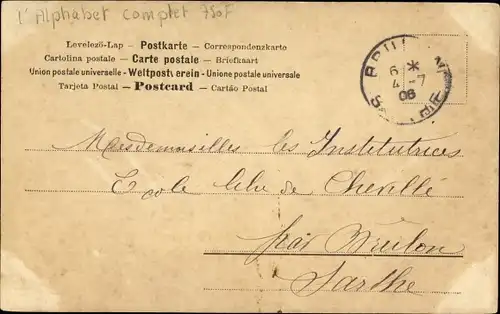 L'Alphabet complet 750F
Levelező-Lap — Postkarte — Correspondenzkarte
Cartolina postale — Carte postale — Briefkaart
Union postale universelle — Weltpostverein — Unione postale universale
Tarjeta Postal — Postcard — Cartão Postal
6 *
4 - 7
06
Mesdemoiselles les Institutrices
Ecole libre de Chevillé
par Brulon
Sarthe